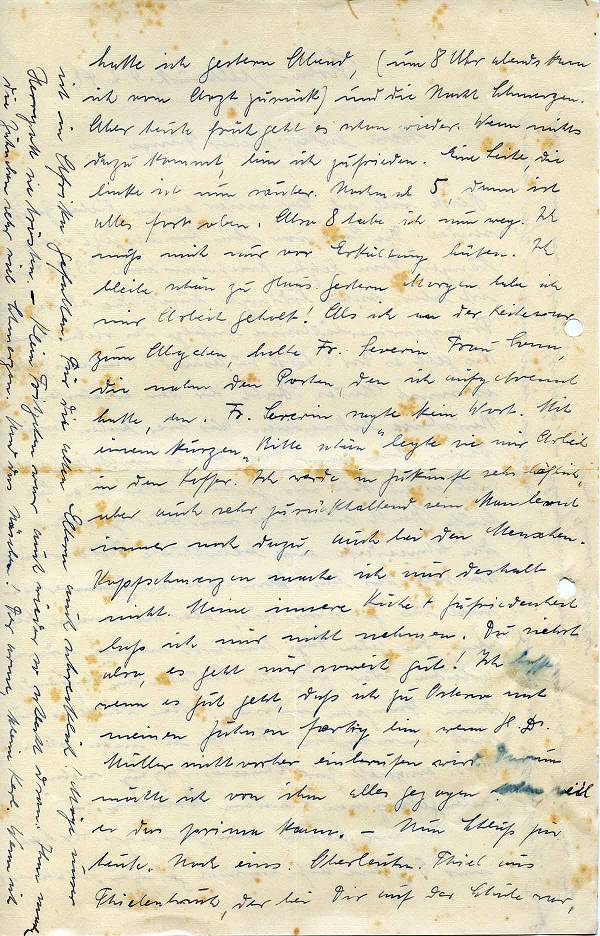 hatte ich gestern Abend, (um 8 Uhr abends kam
ich vom Arzt zurück) und die Nacht Schmerzen.
Aber heute früh geht es schon wieder. Wenn nichts
dazu kommt, bin ich zufrieden. Eine Seite, die
linke ist nun sauber. Nochmal 5, dann ist
alles fort oben. Also 8 habe ich nun weg. Ich
muß mich nur vor Erkältung hüten. Ich
bleibe schön zu Haus. Gestern Morgen habe ich
mir Arbeit geholt! Als ich an der Reihe war
zum Abgeben, holte Fr. Severin Frau
die nahm den Posten, den ich aufgetrennt
hatte, an. Fr. Severin sagte kein Wort. Mit
einem kurzen „Bitte schön" legte sie mir Arbeit
in den Koffer. Ich werde in Zukunft sehr höflich,
aber auch sehr zurückhaltend sein. Man lernt
immer noch dazu, auch bei den Menschen.
Kopfschmerzen mache ich mir deshalb
nicht. Meine innere Ruhe + Zufriedenheit
laß ich mir nicht nehmen. Du siehst
also, es geht mir soweit gut! Ich hoffe,
wenn es gut geht, daß ich zu Ostern mit
meinen Zähnen fertig bin, wenn H. Dr.
Müller nicht vorher einberufen wird. Darum
möchte ich von ihm alles gezogen haben, weil
er das prima kann. – Nun Schluß für
heute. Noch eins. Oberleutn. Thiel aus
Thielenbruch, der bei Dir auf der Schule war,
ist in Afrika gefallen. Für die alten Eltern auch schrecklich! Möge unser
Herrgott sie trösten. – Klein war auch wieder so schlecht dran. Ihm machen
die Zähnchen sehr viel Schmerzen. Und das Näschen! Der arme, kleine Kerl. Wenn ich